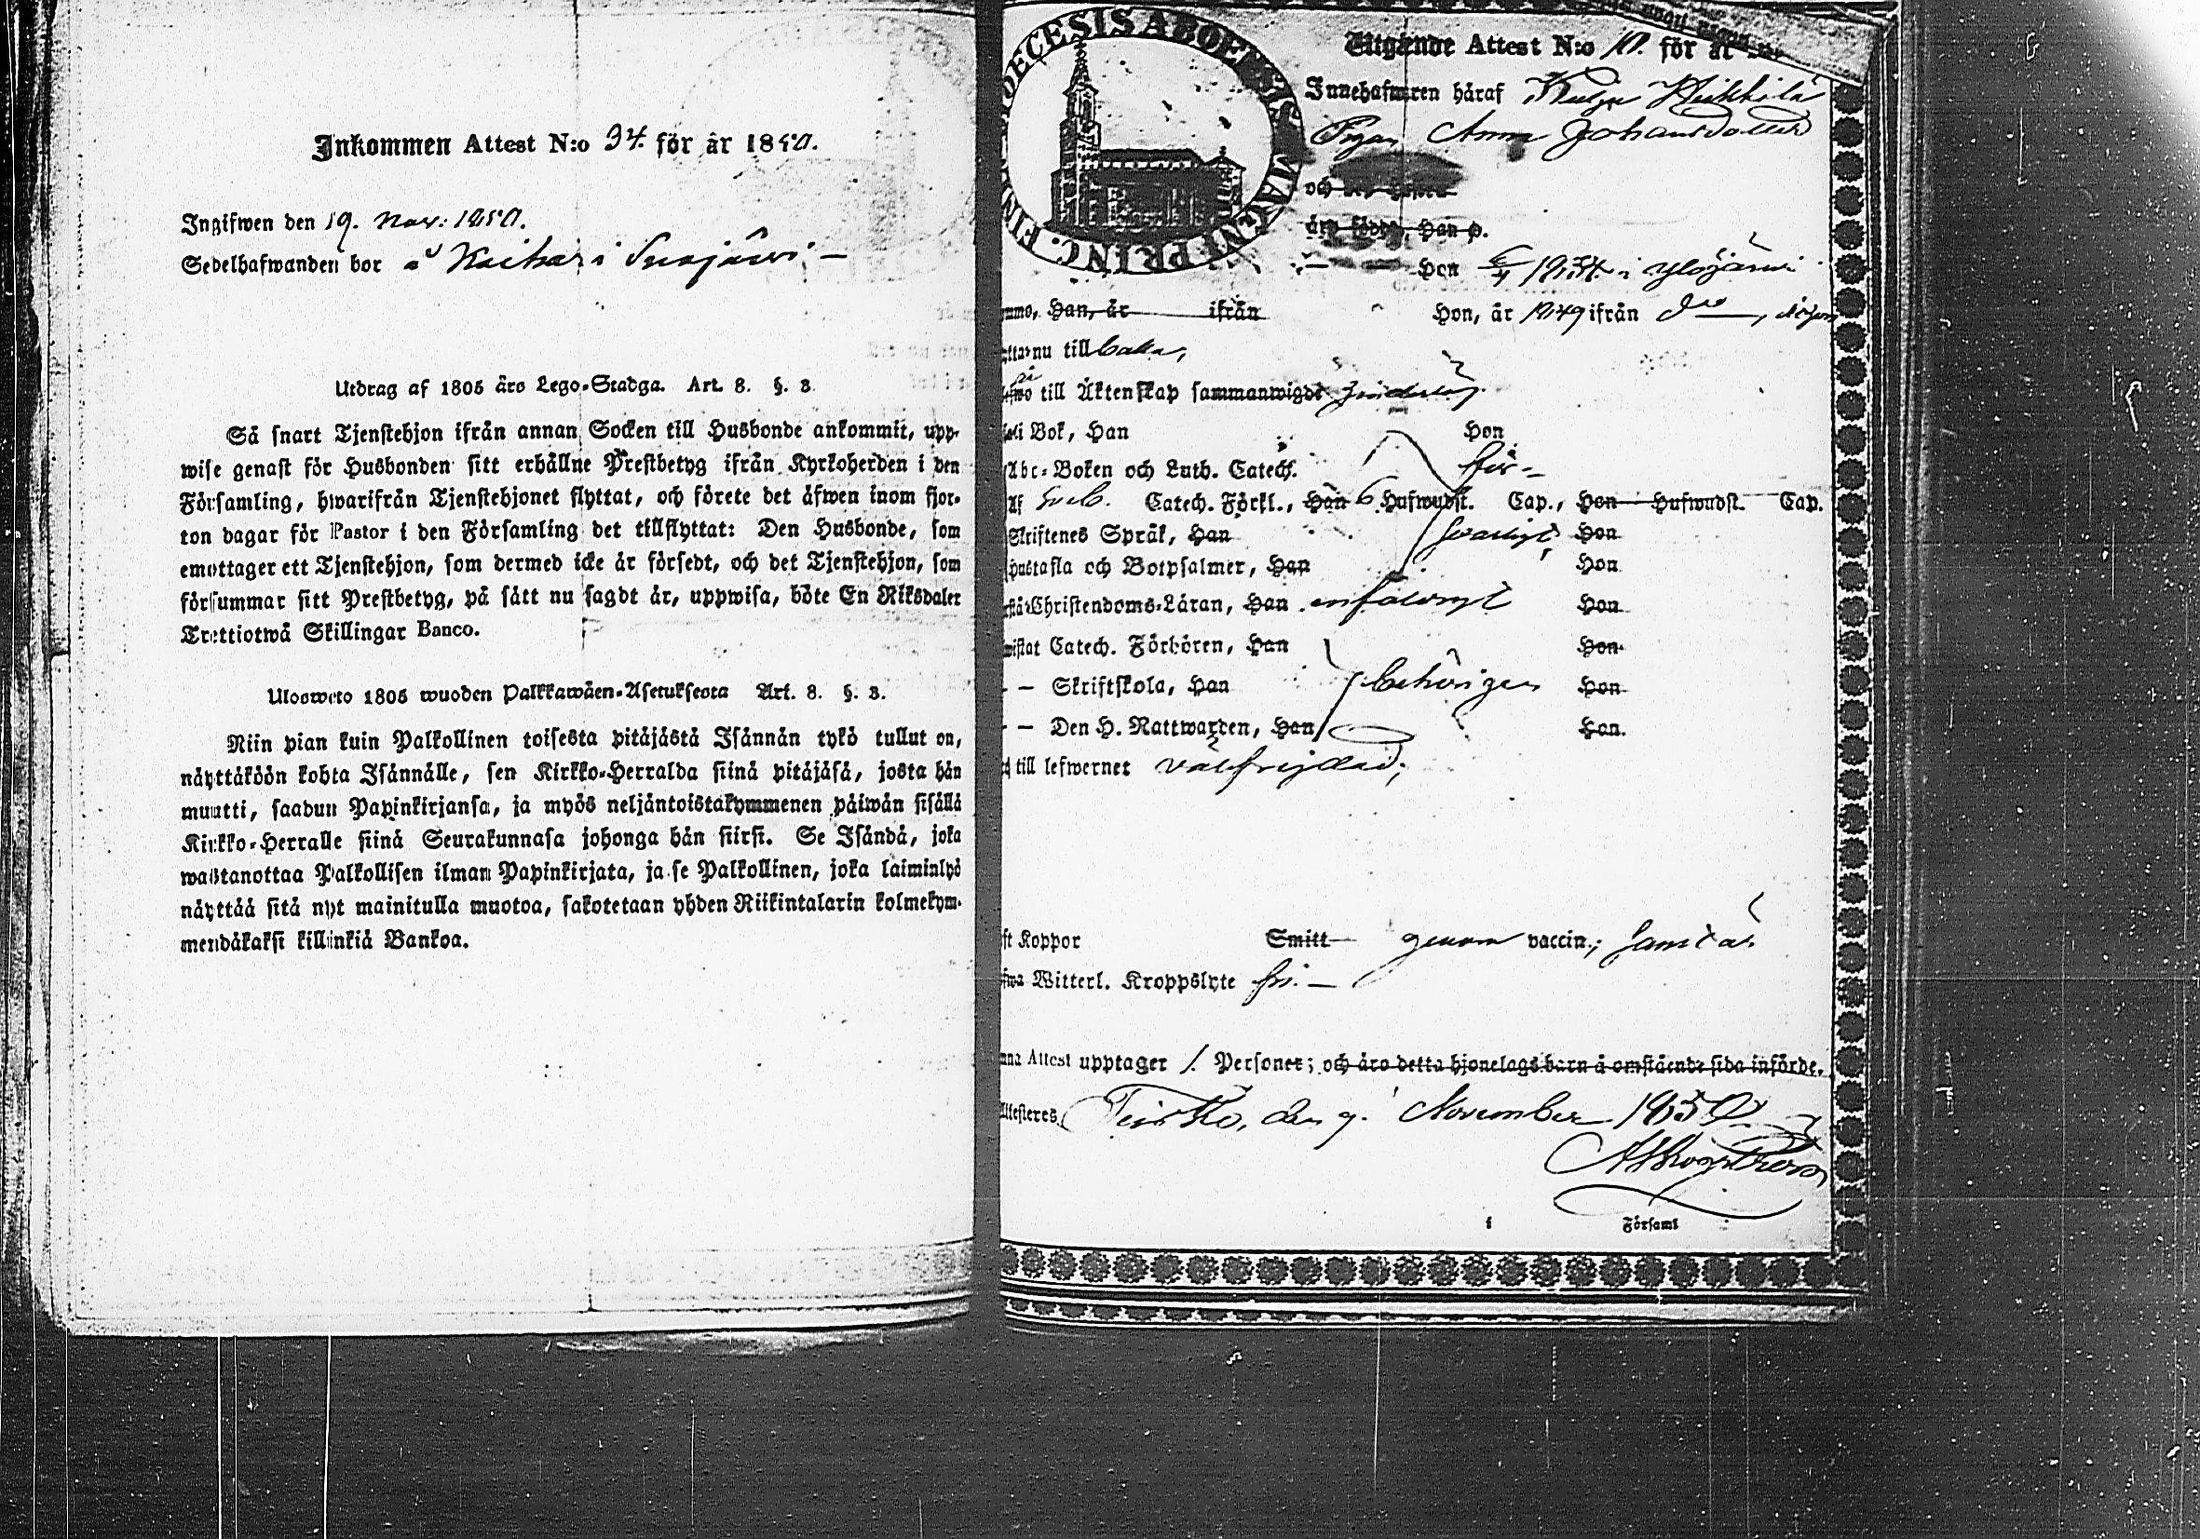 Inkommen Attest N:o 34. för år 1850.
Ingifwen den 19. Nov: 1850.
Sedelhafwanden bor å Kaihari
Utdrag af 1805 års Lego-Stadga. Art. 8. §. 3.
Så snart Tjenstehjon ifrån annan Socken till Husbonde ankommit, upp-
wise genast för Husbonden sitt erhållne Prestbetyg ifrån Kyrkoherden i den
Församling, hwarifrån Tjenstehjonet flyttat, och förete det äfwen inom fjor-
ton dagar för Pastor i den Församling det tillflyttat: Den Husbonde, som
emottager ett Tjenstehjon, som dermed icke är försedt, och det Tjenstehjon, som
försummar sitt Prestbetyg, på sätt nu sagdt är, uppwisa, böte En Riksdaler
Trettiotwå Skillingar Banco.
Ulosweto 1805 wuoden Palkkawäen-Asetuksesta Art. 8. §. 3.
Niin pian kuin Palkollinen toisesta pitäjästä Isännän tykö tullut on,
näyttäköön kohta Isännälle, sen Kirkko-Herralda siinä pitäjäsä, josta hän
muutti, saadun Papinkirjansa, ja myös neljäntoistakymmenen päiwän sisällä
Kirkko-Herralle siinä Seurakunnasa johonga hän siirsi. Se Isändä, joka
wastanottaa Palkollisen ilman Papinkirjata, ja se Palkollinen, joka laiminlyö
näyttää sitä nyt mainitulla muotoa, sakotetaan yhden Riikintalarin kolmekym-
mendäkaksi killinkiä Bankoa.
DIOECESIS ABOENSIS MAGNI PRINC. FIN
Utgående Attest N:o 10. för år
Innehafwaren häraf Heikkilä
Pigan Anna Johansdotter
och
äro födde, Han d.
Hon 1834. i Ylöjärvi
Han, år ifrån Hon, år 1849 ifrån
nu till baka,
till Äktenskap sammanwigde
Bok, Han Hon
Abc-Boken och Luth. Catech. för-
Af Sveb. Catech. Förkl., Han 6 Hufwudst. Cap., Hon Hufwudst. Cap.
Skriftenes Språk, Han svarligt, Hon
Hustafla och Botpsalmer, Han Hon
Christendoms-Läran, Han enfaldigt Hon
Catech. Förhören, Han Hon
— Skriftskola, Han behörigen Hon
— Den H. Nattwarden, Han Hon.
till lefwernet välfrejdad;
Koppor Smitt genom vaccin.; samt är
Witterl. Kroppslyte fri. —
Attest upptager 1. Personer; och äro detta hjonelags barn å omstående sida införde.
Attesteras Teisko, den 9. November 1850.
Församl